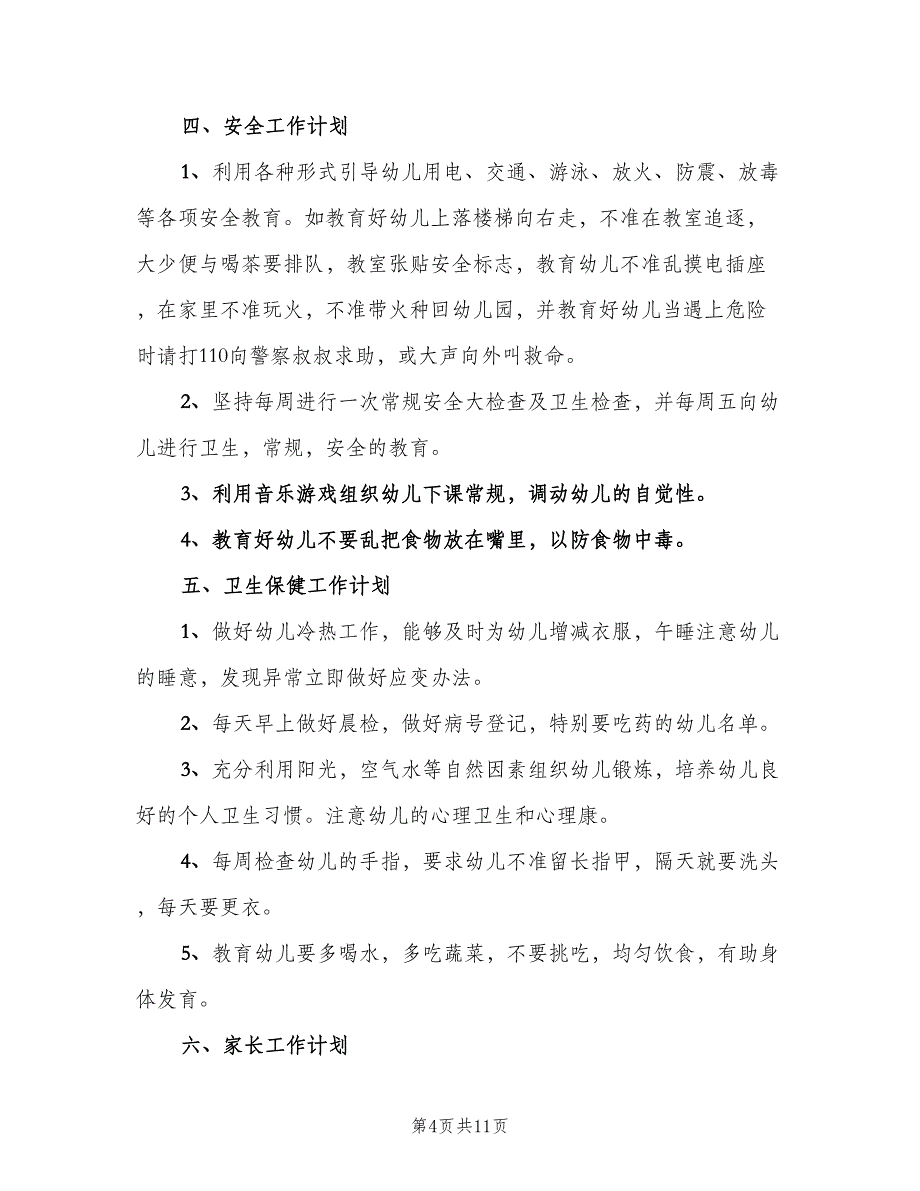 四、安全工作计划
1、利用各种形式引导幼儿用电、交通、游泳、放火、防震、放毒
等各项安全教育。如教育好幼儿上落楼梯向右走，不准在教室追逐，
大少便与喝茶要排队，教室张贴安全标志，教育幼儿不准乱摸电插座
，在家里不准玩火，不准带火种回幼儿园，并教育好幼儿当遇上危险
时请打110向警察叔叔求助，或大声向外叫救命。
2、坚持每周进行一次常规安全大检查及卫生检查，并每周五向幼
儿进行卫生，常规，安全的教育。
3、利用音乐游戏组织幼儿下课常规，调动幼儿的自觉性。
4、教育好幼儿不要乱把食物放在嘴里，以防食物中毒。
五、卫生保健工作计划
1、做好幼儿冷热工作，能够及时为幼儿增减衣服，午睡注意幼儿
的睡意，发现异常立即做好应变办法。
2、每天早上做好晨检，做好病号登记，特别要吃药的幼儿名单。
3、充分利用阳光，空气水等自然因素组织幼儿锻炼，培养幼儿良
好的个人卫生习惯。注意幼儿的心理卫生和心理康。
4、每周检查幼儿的手指，要求幼儿不准留长指甲，隔天就要洗头
，每天要更衣。
5、教育幼儿要多喝水，多吃蔬菜，不要挑吃，均匀饮食，有助身
体发育。
六、家长工作计划
第4页共11页